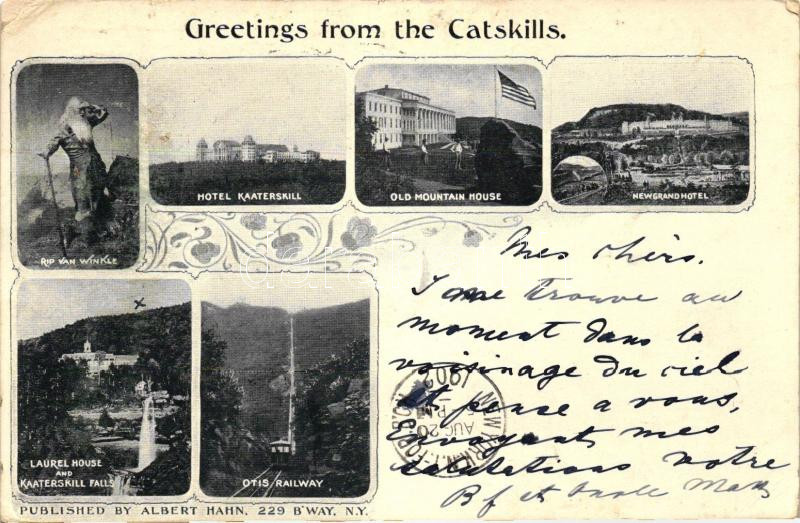 Greetings from the Catskills.
RIP VAN WINKLE
HOTEL KAATERSKILL
OLD MOUNTAIN HOUSE
NEW GRAND HOTEL
LAUREL HOUSE
AND
KAATERSKILL FALLS
OTIS RAILWAY
Mes chers.
I me trouve au
moment dans la
voisinage du ciel
et pense a vous,
Envoyant mes
salutations votre
Bf et oncle
NEW YORK, N.Y.
AUG 20
1902
PUBLISHED BY ALBERT HAHN, 229 B'WAY, N.Y.